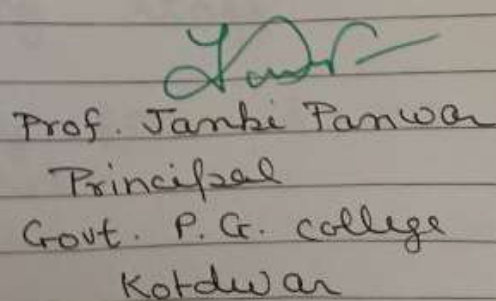 Prof. Janki Panwar
Principal
Govt. P.G. college
Kotdwar